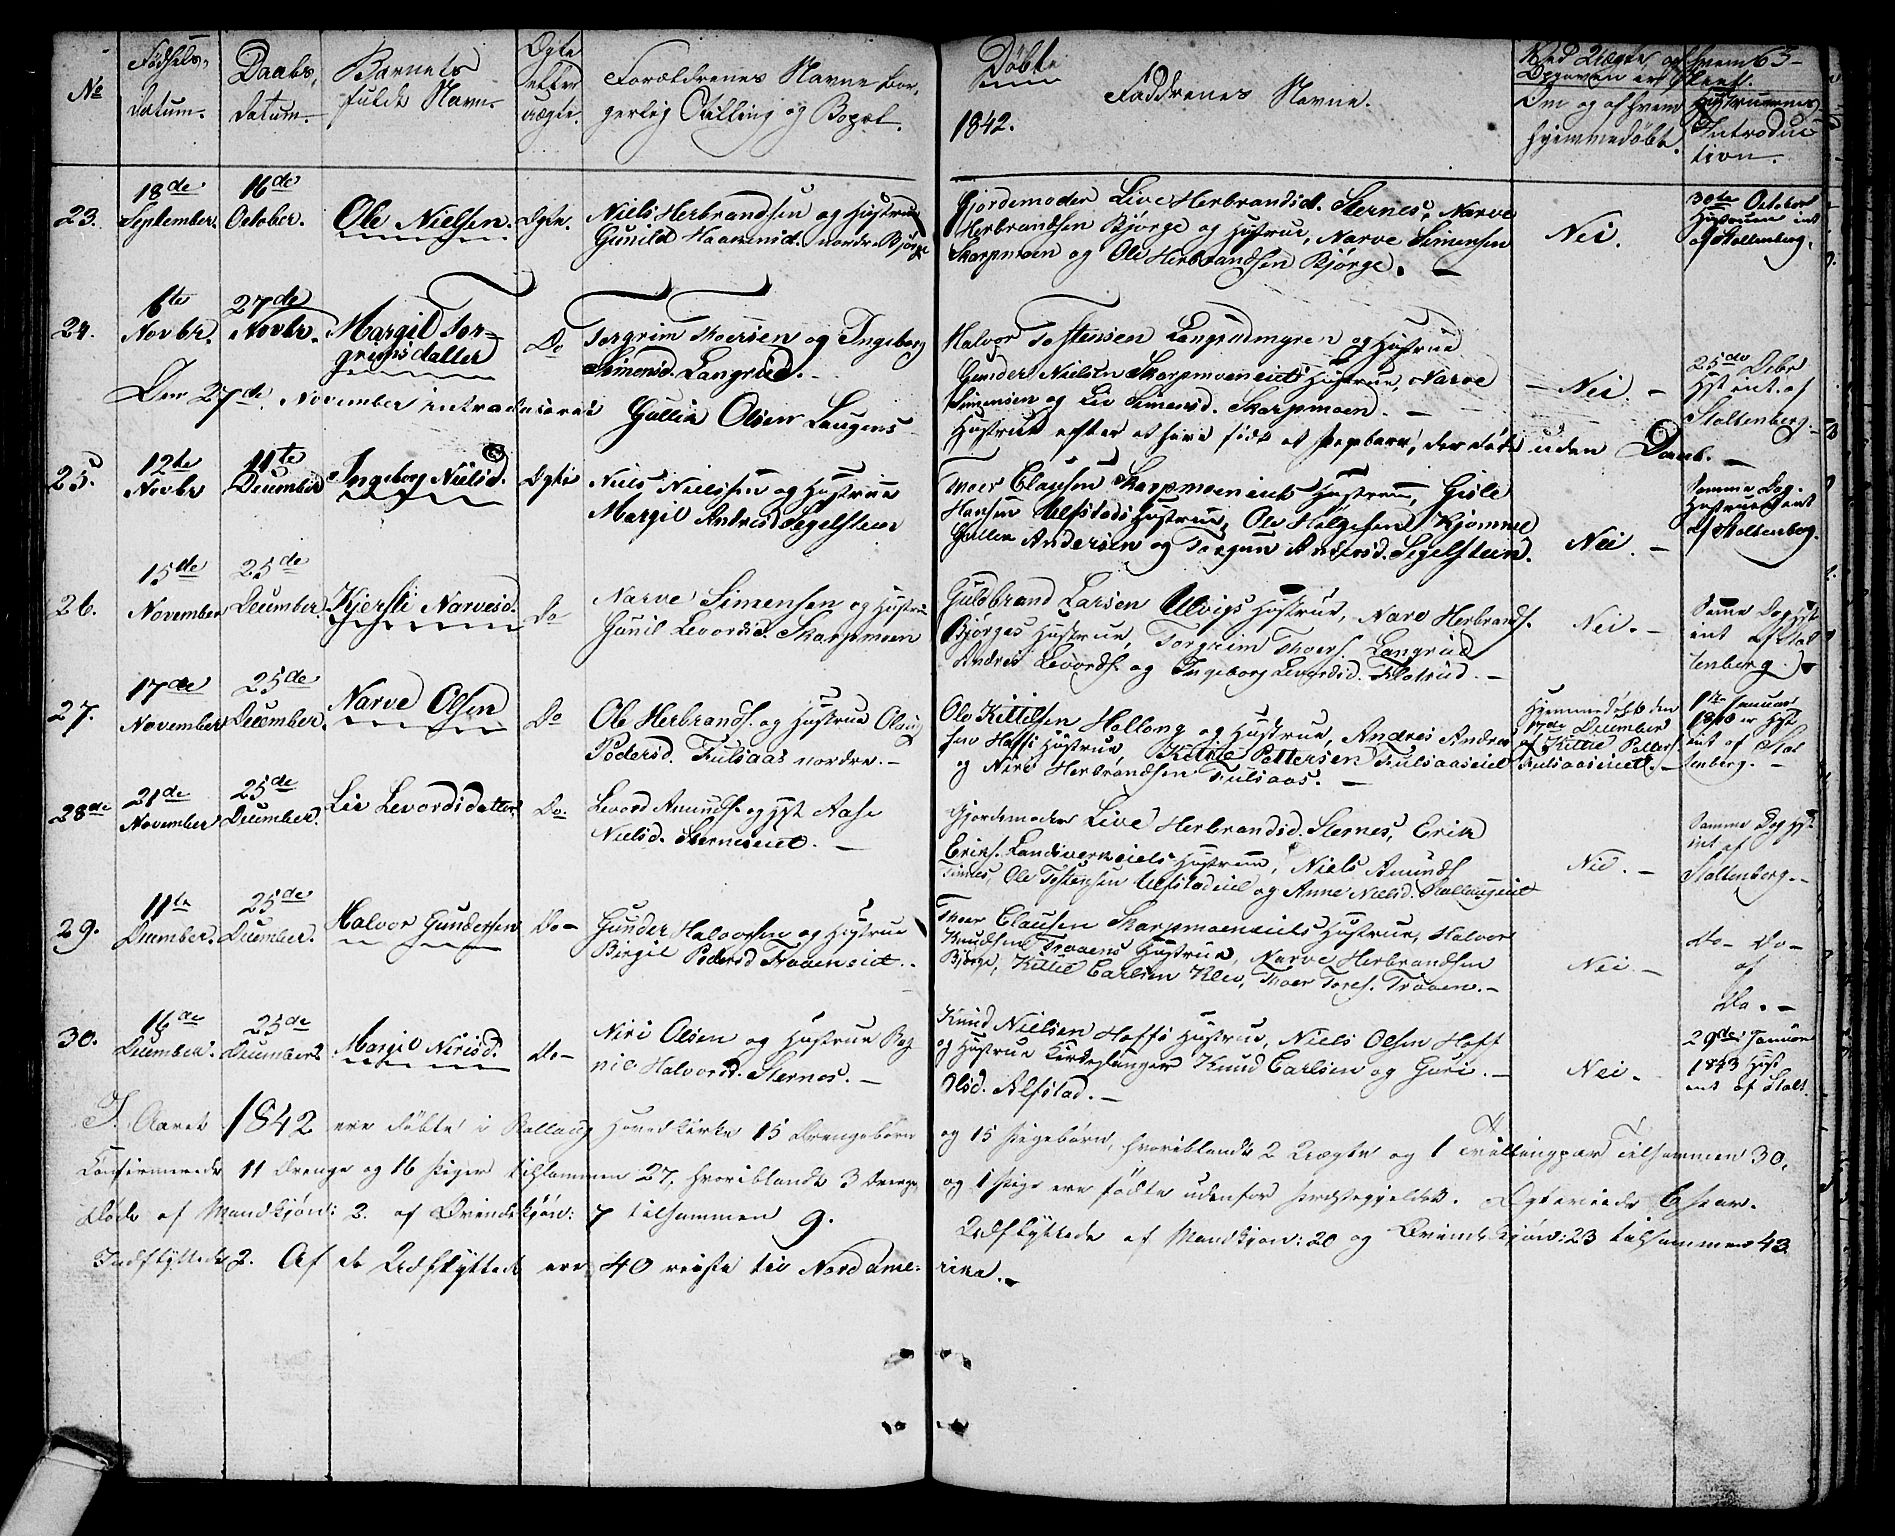 No
Fødsels-
datum.
Daabs-
datum.
Barnets
fulde Navn.
Ægte
eller
uægte.
Forældrenes Navne Bor-
gerlig Stilling og Bopæl.
Døbte
1842.
Faddrenes Navne.
63
Om og af hvem
hjemmedøbt.
Hustruernes
Introduc
tion.
23.
18de
September.
16de
October.
Ole Nielsen.
Ægte.
Niels Herbrandsen og Hustrue
Gunild Haavensd. nordre Bjørge
Gjordemoder Live Herbrandsd. Sternes, Narve
Herbrandsen Bjørge og Hustrue, Narve Simensen
Skarpmoen og Ole Herbrandsen Bjørge. -
Nei.
30te October
Hustruen int
af Stoltenberg.
24.
6te
Novbr.
27de
Novbr.
Margit Tor-
grimsdatter
Do
Torgrim Thoersen og Ingeborg
Simensd. Langrud. -
Halvor Tostensen Langrudmyren og Hustrue
Gunder Nielsen Skarpmoeneiets Hustrue, Narve
Simensen og Liv Simensd. Skarpmoen. -
- Nei. -
25de Debr
Hst int. af
Stoltenberg. -
Den 27de November introduceredes Gullik Olsen Laugens
Hustrue efter at have født et Pigebarn, der døde uden Daab. -
25.
12te
Novbr
11te
December
Ingeborg Nielsd.
Ægte
Niels Nielssen og Hustrue
Margit Andersd Segelsteen
Thoer Clausen Skarpmoeneiets Hustrue, Gisle
Hansen Ulfstads Hustrue, Ole Helgesen Kjomme
Gullik Andersen og Torgun Andersd. Segelsteen.
Nei. -
Samme Dag.
Hustruen int
af Stoltenberg.
26.
15de
November
25de
December.
Kjersti Narvesd.
Do
Narve Simensen og Hustrue
Gunil Levordsd. Skarpmoen
Guldbrand Larsen Ulvigs Hustrue, Narve Herbrands.
Bjørges Hustrue, Torgrim Thoers. Langrud
Anders Levords. og Ingeborg Levordsd. Flatrud. -
Nei. -
Samme Dag Hst
int af Stol
tenberg.
27.
17de
November
25de
December.
Narve Olsen
Do
Ole Herbrands. og Hustrue
Pedersd. Fulsaas nordre. -
Ole Kittilsen Hallong og Hustrue, Anders Ander
sen Hoffs Hustrue, Kittil Pettersen Fulsaaseiet
og Niri Herbrandsen Fulsaas. -
Hjemmedøbt den
17de December
af Kittil Petters.
Fulsaaseiet. -
Hst
int af Stol
tenberg. -
28de
21de
November
25de
December.
Liv Levordsdatter
Do.
Levord Amunds. og Hst Aase
Nielsd. Sterneseiet. -
Gjordemoder Live Herbrandsd. Sternes, Erik
Eriks. Landsverkeiets Hustrue, Niels Amunds.
Tinnes, Ole Tostensen Ulfstadeiet og Anne Nielsd. Rollaugeiet
Nei. -
Samme Dag Hst
int af
Stoltenberg. -
29.
11te
December.
25de
December.
Halvor Gundersen
Do -
Gunder Halvorsen og Hustrue
Birgit Pedersd Traaeneiet. -
Thoer Clausen Skarpmoeneiets Hustrue, Halvor
Knudsen Traaens Hustrue, Narve Herbrandsen
Bjørge, Kittil Carlsen Klev, Thoer Tores. Traaen. -
Nei. -
Do - Do -
af
Do. -
30.
16de
December.
25de
December.
Margit Nirisd.
Do -
Niri Olsen og Hustrue Rag
nil Halvorsd. Sternes. -
Knud Nielsen Hoffs Hustrue, Niels Olsen Hoft
og Hustrue Kirkesanger Knud Carlsen og Guri
Olsd. Alfstad. -
Nei.
29de Januar
1843 Hust
int af Stolt.
I Aaret 1842 ere døbte i Rollaug Hovedkirke 15 Drengebørn og 15 Pigebørn, hvoriblandt 2 Uægte og 1 Tvillingpar Tilsammen 30.
Confirmerede 11 Drenge og 16 Piger tilsammen 27, hvoriblandt 3 Drenge og 1 Pige ere fødte udenfor Præstegjeldet. Egteviede 6 Par.
Døde af Mandkjøn: 2. af Qvindekjøn: 7 tilsammen 9. Udflyttede af Mandkjøn: 20 og Qvindekjøn: 23 tilsammen 43.
Indflyttede 2. Af de Udflyttede ere 40 reiste til Nord Ame- rika. -